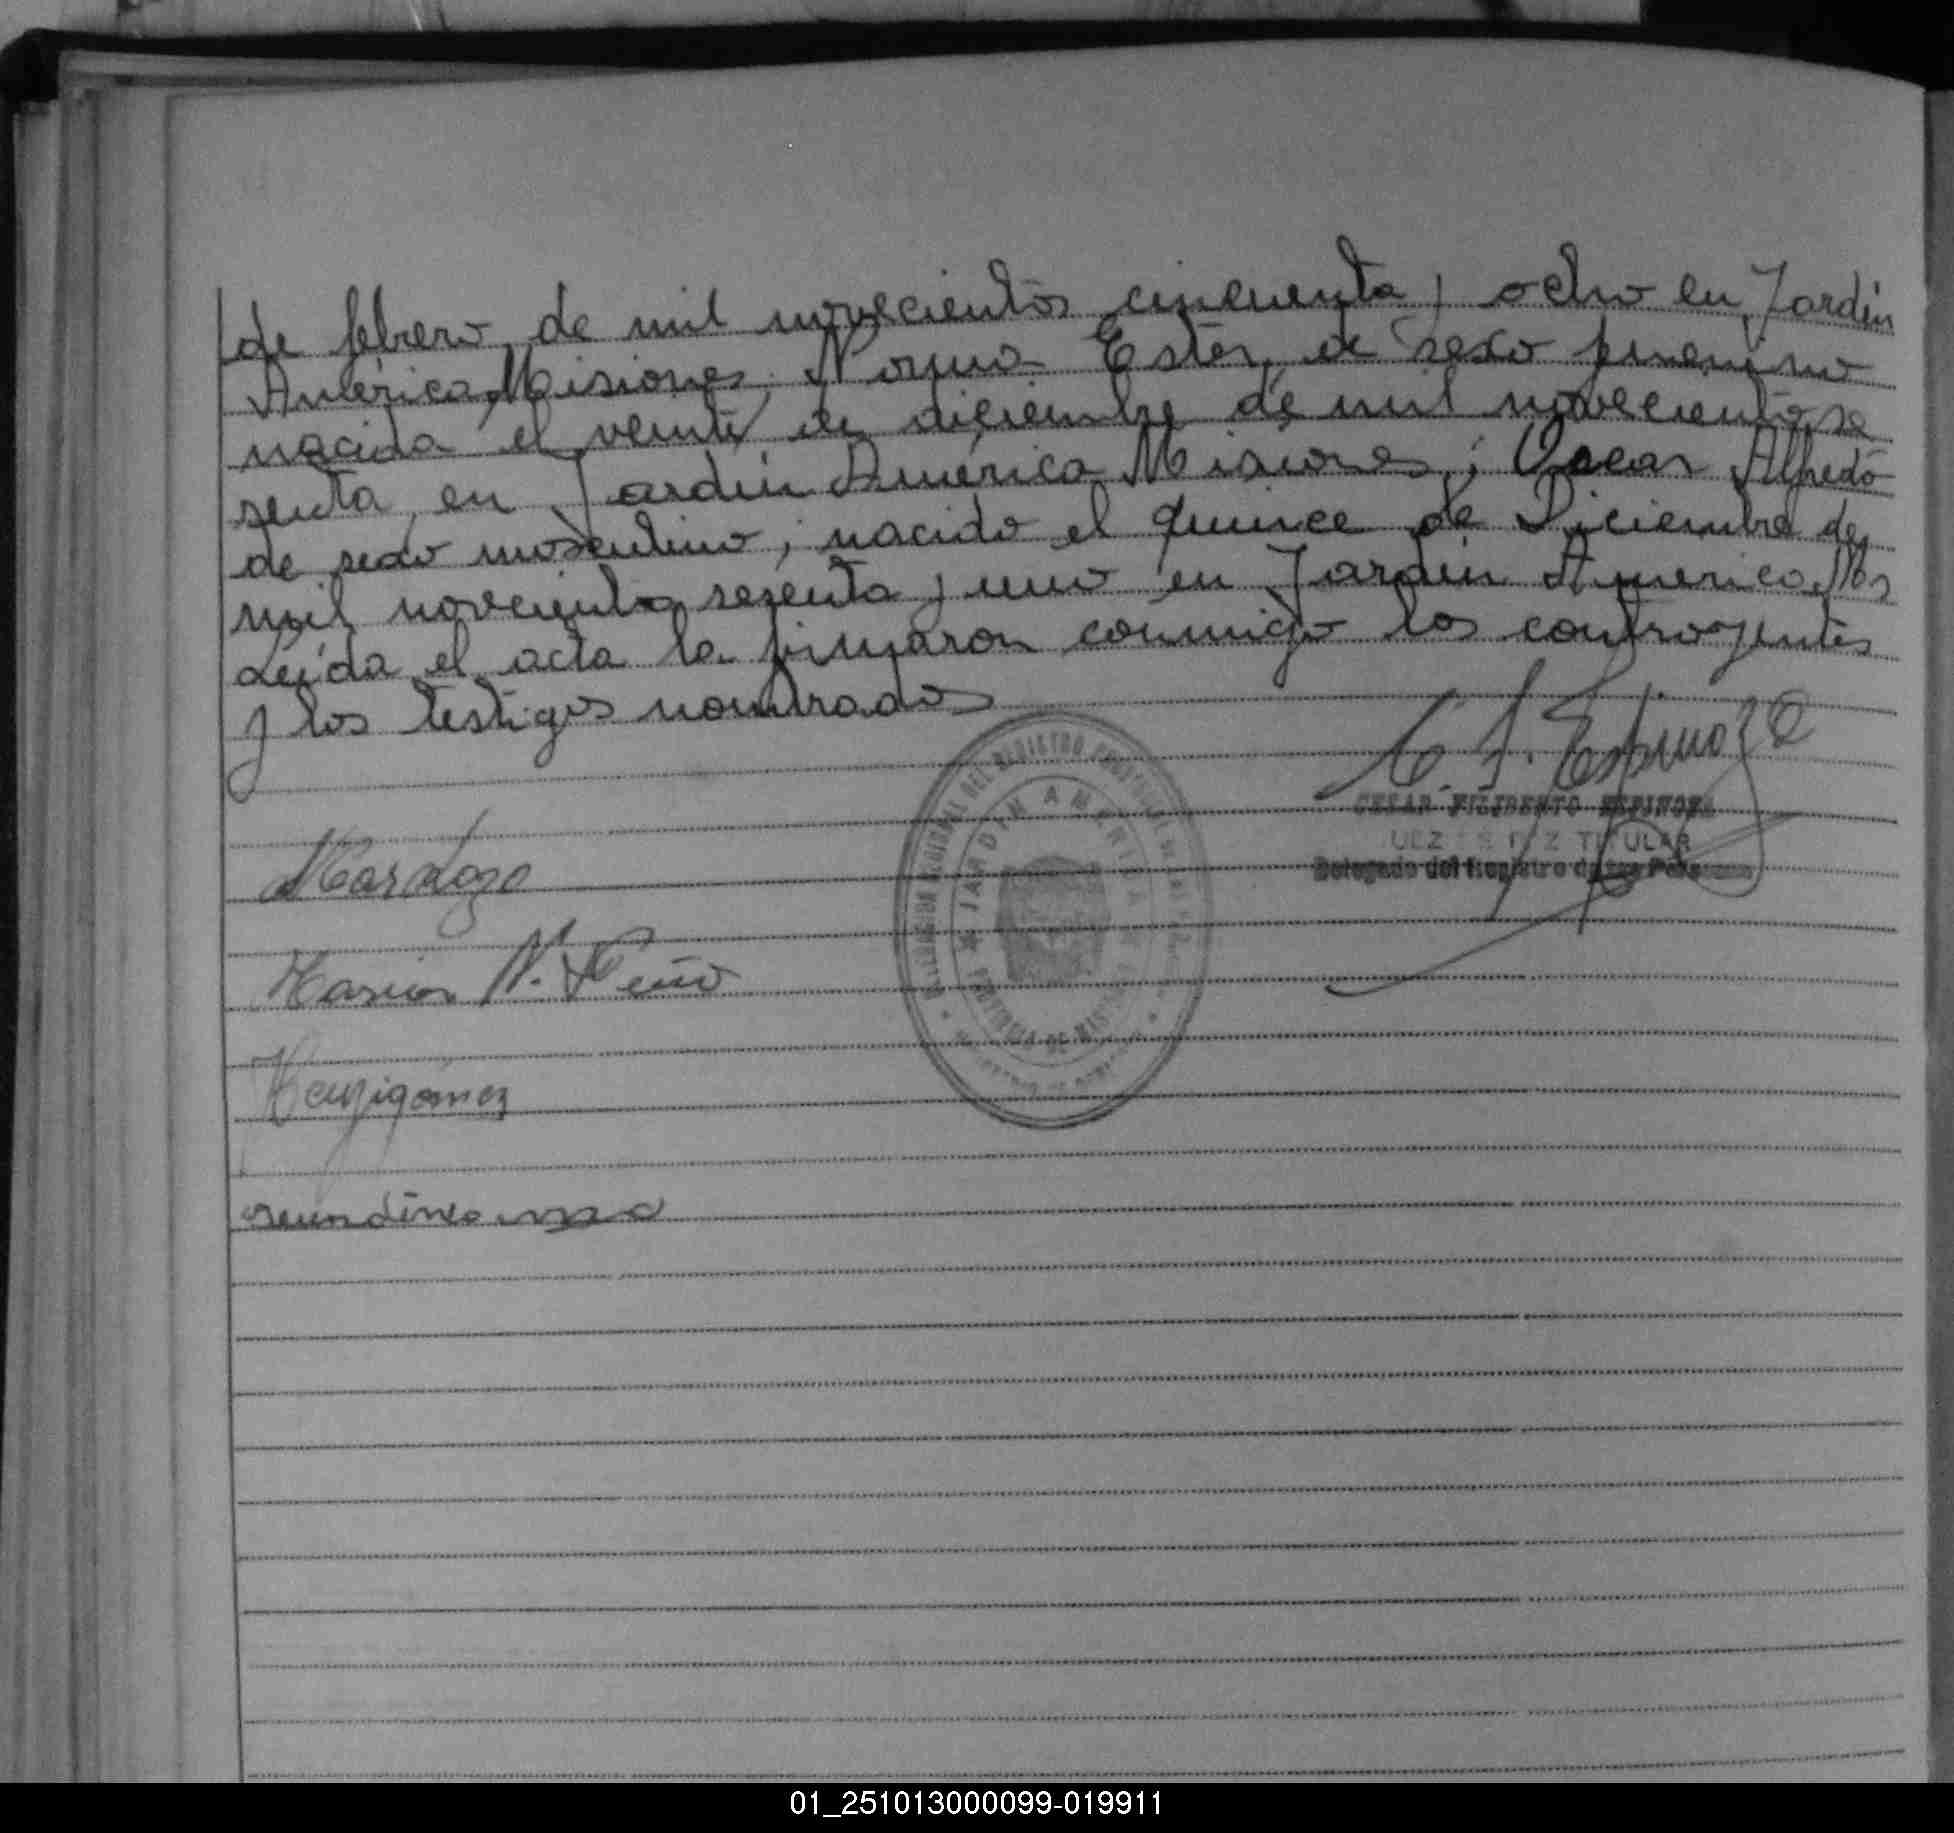 de febrero de mil novecientos cincuenta y ocho en Jardín
América, Misiones; Norma Ester, de sexo femenino
nacida el veinte de diciembre de mil novecientos se
senta, en Jardín América Misiones; Oscar Alfredo
de sexo masculino, nacido el quince de Diciembre de
mil novecientos sesenta y uno en Jardín America, Mes
Leída el acta la firmaron conmigo los contrayentes
y los testigos nombrados
C. F. Espinoza
CESAR FILIBERTO ESPINOZA
JUEZ DE PAZ TITULAR
Delegado del Registro de las Personas
JARDIN AMERICA
PROVINCIA DE MISIONES
Marcos N. Peño
01_251013000099-019911